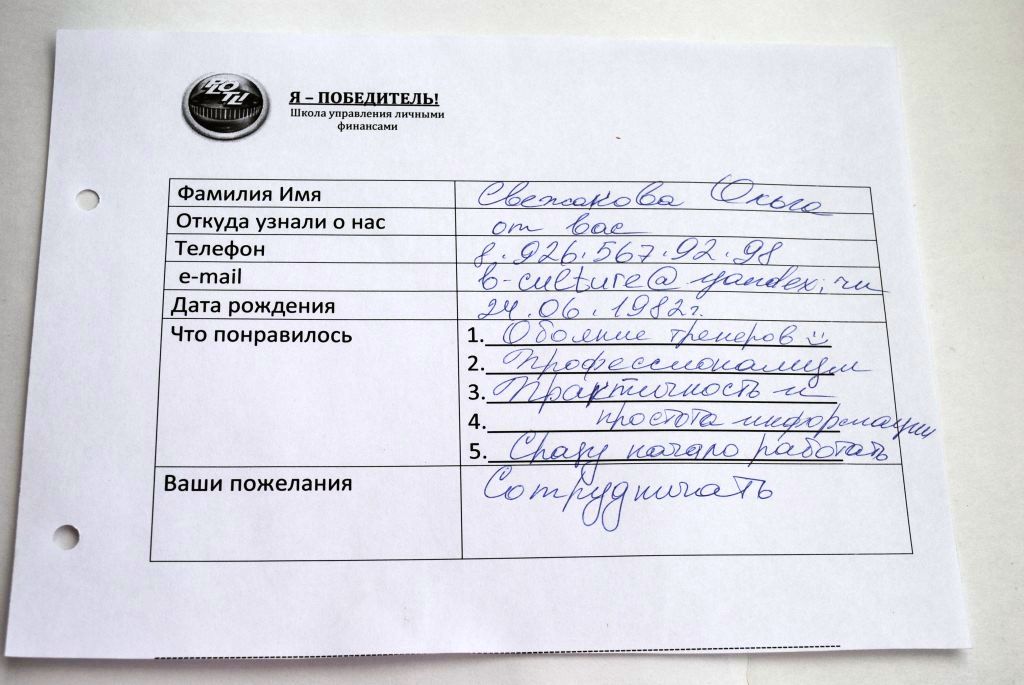 Я – ПОБЕДИТЕЛЬ!
Школа управления личными
финансами
Фамилия Имя Свежакова Ольга
Откуда узнали о нас от вас
Телефон 8.926.567.92.98
e-mail b-culture@yandex.ru
Дата рождения 24.06.1982г.
Что понравилось 1. Обояние тренеров
2. Профессионализм
3. Практичность и
4. простота информации
5. Сразу начало работать
Ваши пожелания Сотрудничать